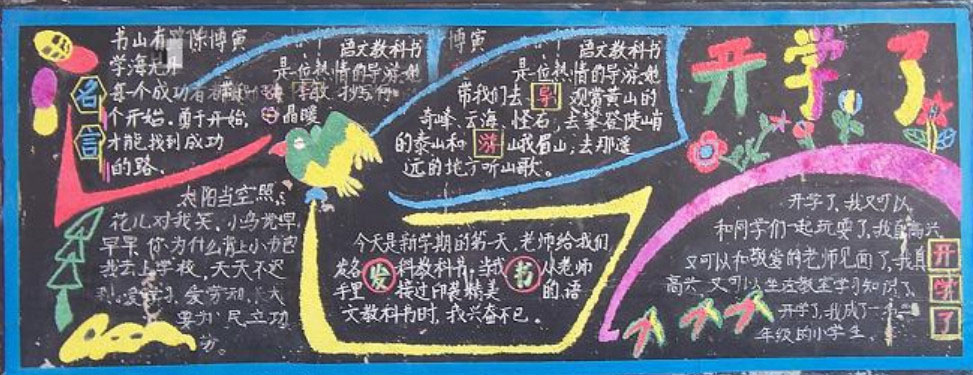 开学了
名言
书山有
陈博寅
学海无
每个成功者都
个开始.勇于开始,
才能找到成功
的路.
晶暖
博寅
语文教科书
是一位热情的导游.她
语文教科书
是一位热情的导游.她
带我们去 导 观赏黄山的
奇峰、云海、怪石,去攀登陡峭
的泰山和 游 山峨眉山;去那遥
远的地方听山歌.
太阳当空照,
花儿对我笑、小鸟说早
早早 你为什么背上小
我去上学校,天天不迟
到.爱学习、爱劳动、长大
要为 民立功
今天是新学期的第一天,老师给我们
发各 发 科教科书,当我 书 从老师
手里 接过印装精美 的语
文教科书时,我兴奋不已.
开学了,我又可以
和同学们一起玩耍了,我真高兴
又可以和敬爱的老师见面了,我真
高兴 又可以坐在教室学习知识了
开学了,我成了一名
年级的小学生.
开
学
了